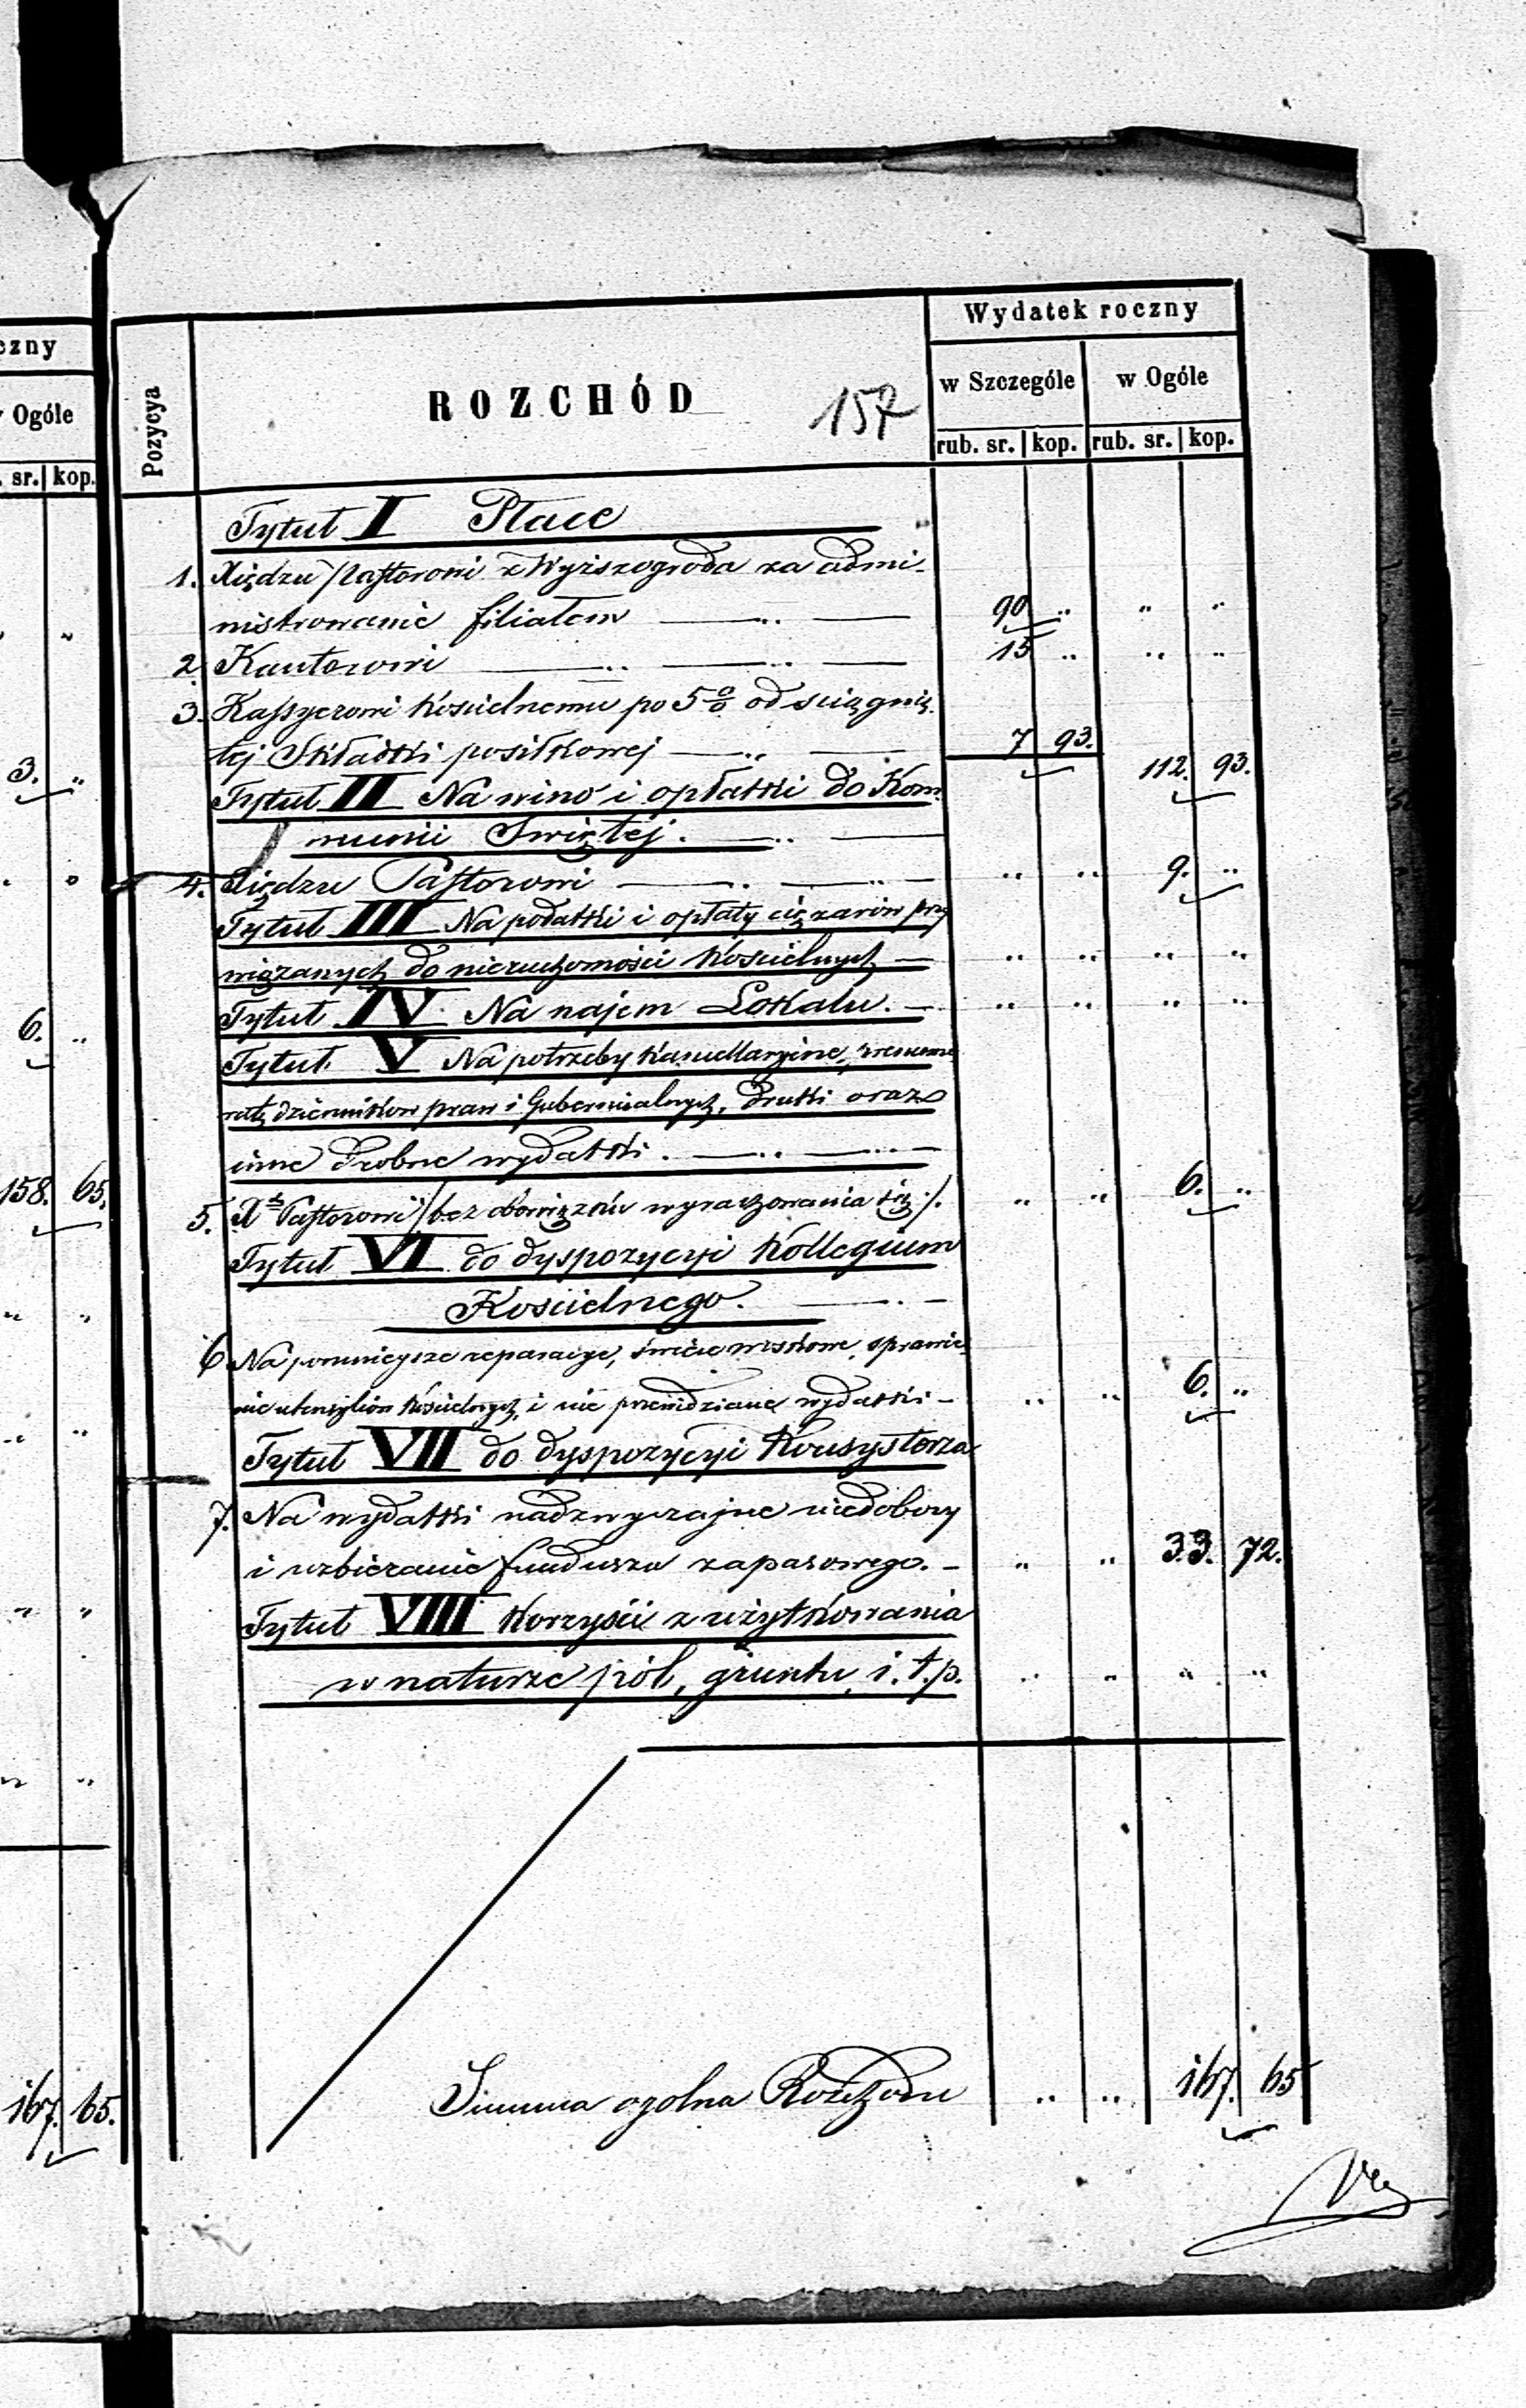 czny
Ogóle
sr. kop.
" "
3. "
6. "
158. 65.
" "
" "
" "
" "
167. 65.
Wydatek roczny
Pozycya ROZCHÓD 157 w Szczególe w Ogóle
rub. sr. kop. rub. sr. kop.
Tytuł I Płace
1. Xiędzu Pastorowi z Wyszogroda za admi-
nistrowanie filiałem 90 " " "
2. Kantorowi 15 " " "
3. Kassyerowi Kościelnemu po 5% od sciągnię-
tej Składki posiłkowej 7 93. 112. 93.
Tytuł II Na wino i opłatki do Kom
munii Świętej.
4. Xiędzu Pastorowi " " 9. "
Tytuł III Na podatki i opłaty ciężarów przy
wiązanych do nieruchomości Kościelnych " " " "
Tytuł IV Na najem Lokalu. " " " "
Tytuł V Na potrzeby Kancellaryine, prenume
ratę dzienników praw i Gubernialnych, druki oraz
inne drobne wydatki.
5. Xs Pastorowi /bez obowiązku wyrachowania się/. " " 6. "
Tytuł VI do dyspozycyi Kollegium
Kościelnego.
6 Na pomniejsze reparacye, świece woskowe, sprawie-
nie utensyliów Kościelnych, i nie przewidziane wydatki " " 6. "
Tytuł VII do dyspozycyi Konsystorza
7. Na wydatki nadzwyczajne niedobory
i uzbieranie funduszu zapasowego. " " 33. 72.
Tytuł VIII Korzyści z użytkowania
w naturze pól, gruntu, i. t. p. " " " "
Summa ogolna Rozchodu " " 167. 65